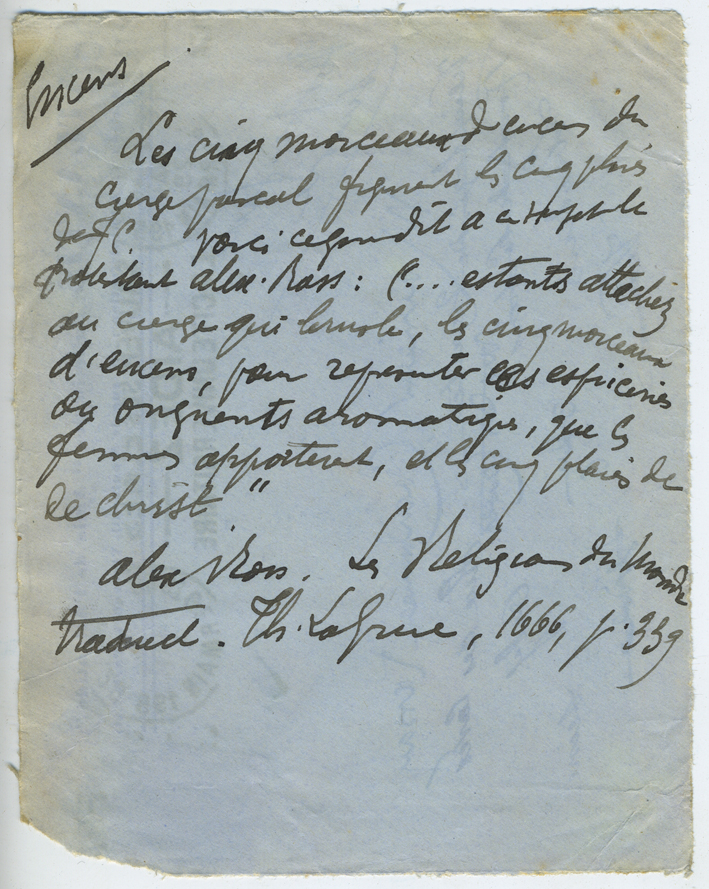 Encens
Les cinq morceaux d'encens du
cierge pascal figurent les cinq plaies
de J. C. Voici ce qu'en dit à ce sujet le
protestant Alex. Ross : "... estants attachez
au cierge qui brusle, les cinq morceaux
d'encens, pour representer les espiceries
ou onguents aromatiqs, que les
femmes apporterent, et les cinq plaies de
le christ"
Alex Ross. Les Religions du Monde
traduct. Th. La Grue, 1666, p. 339